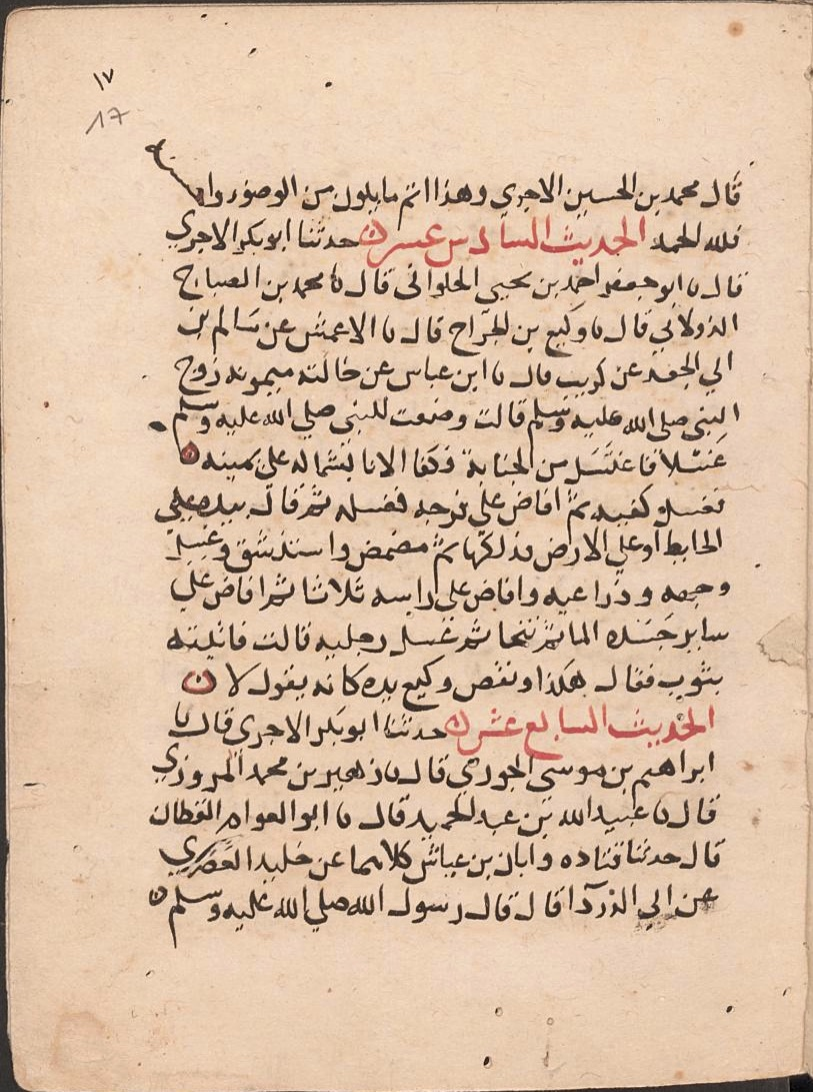 ١٧
17
قال محمد بن الحسين الاجري وهذا اتم ما يكون من الوضوء واحسنه
فلله الحمد الحديث السادس عشر حدثنا ابو بكر الاجري
قال نا ابو جعفر احمد بن يحيى الحلواني قال نا محمد بن الصباح
الدولابي قال نا وكيع بن الجراح قال نا الاعمش عن سالم بن
ابي الجعد عن كريب قال نا ابن عباس عن خالته ميمونه زوج
النبي صلى الله عليه وسلم قالت وضعت للنبي صلي الله عليه وسلم
غسلا فاغتسل من الجنابة فكفا الانا بشماله على يمينه
فغسل كفيه ثم افاض علي فرجه فغسله ثم قال بيده علي
الحايط او علي الارض فدلكها ثم مضمض واستنشق وغسل
وجهه وذراعيه وافاض على راسه ثلاثا ثم افاض علي
ساير جسده الما ثم تنحا ثم غسل رجليه قالت فاتيته
بثوب فقال هكذا ونفض وكيع يده كانه يقول لا
الحديث السابع عشر حدثنا ابو بكر الاجري قال نا
ابراهيم بن موسى الجوزي قال نا زهير بن محمد المروزي
قال نا عبيد الله بن عبد الحميد قال نا ابو العوام القطان
قال حدثنا قتاده وابان بن عياش كلاهما عن خليد العصري
عن ابي الدرداء قال قال رسول الله صلي الله عليه وسلم